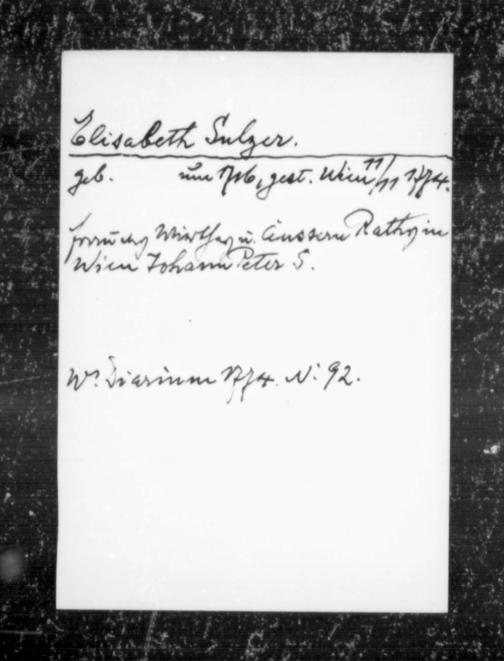 Elisabeth Sulzer.
geb. um 1716, gest. Wien 11/11 1774.
Frau des Wirthes u. äussern Raths in
Wien Johann Peter S.
Wr. Diarium 1774. No. 92.